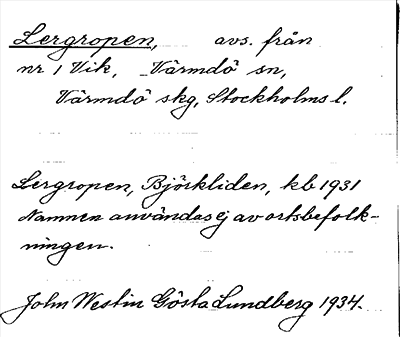 Lergropen, avs. från
nr 1 Vik, Värmdö sn,
Värmdö skg, Stockholms l.
Lergropen, Björkliden, kb 1931
Namnen användas ej av ortsbefolk-
ningen.
John Westin Gösta Lundberg 1934.